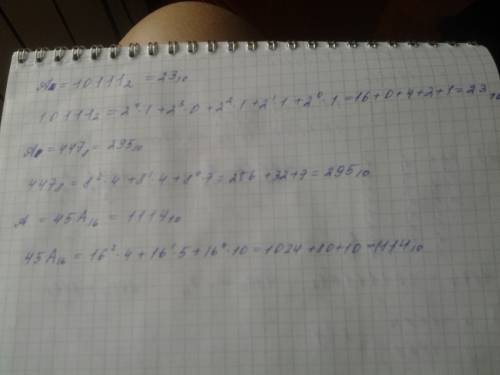 A = 10111₂ = 23₁₀
10111₂ = 2⁴·1 + 2³·0 + 2²·1 + 2¹·1 + 2⁰·1 = 16+0+4+2+1 = 23₁₀
A = 447₈ = 295₁₀
447₈ = 8²·4 + 8¹·4 + 8⁰·7 = 256 + 32 + 7 = 295₁₀
A = 45A₁₆ = 1114₁₀
45A₁₆ = 16²·4 + 16¹·5 + 16⁰·10 = 1024 + 80 + 10 = 1114₁₀